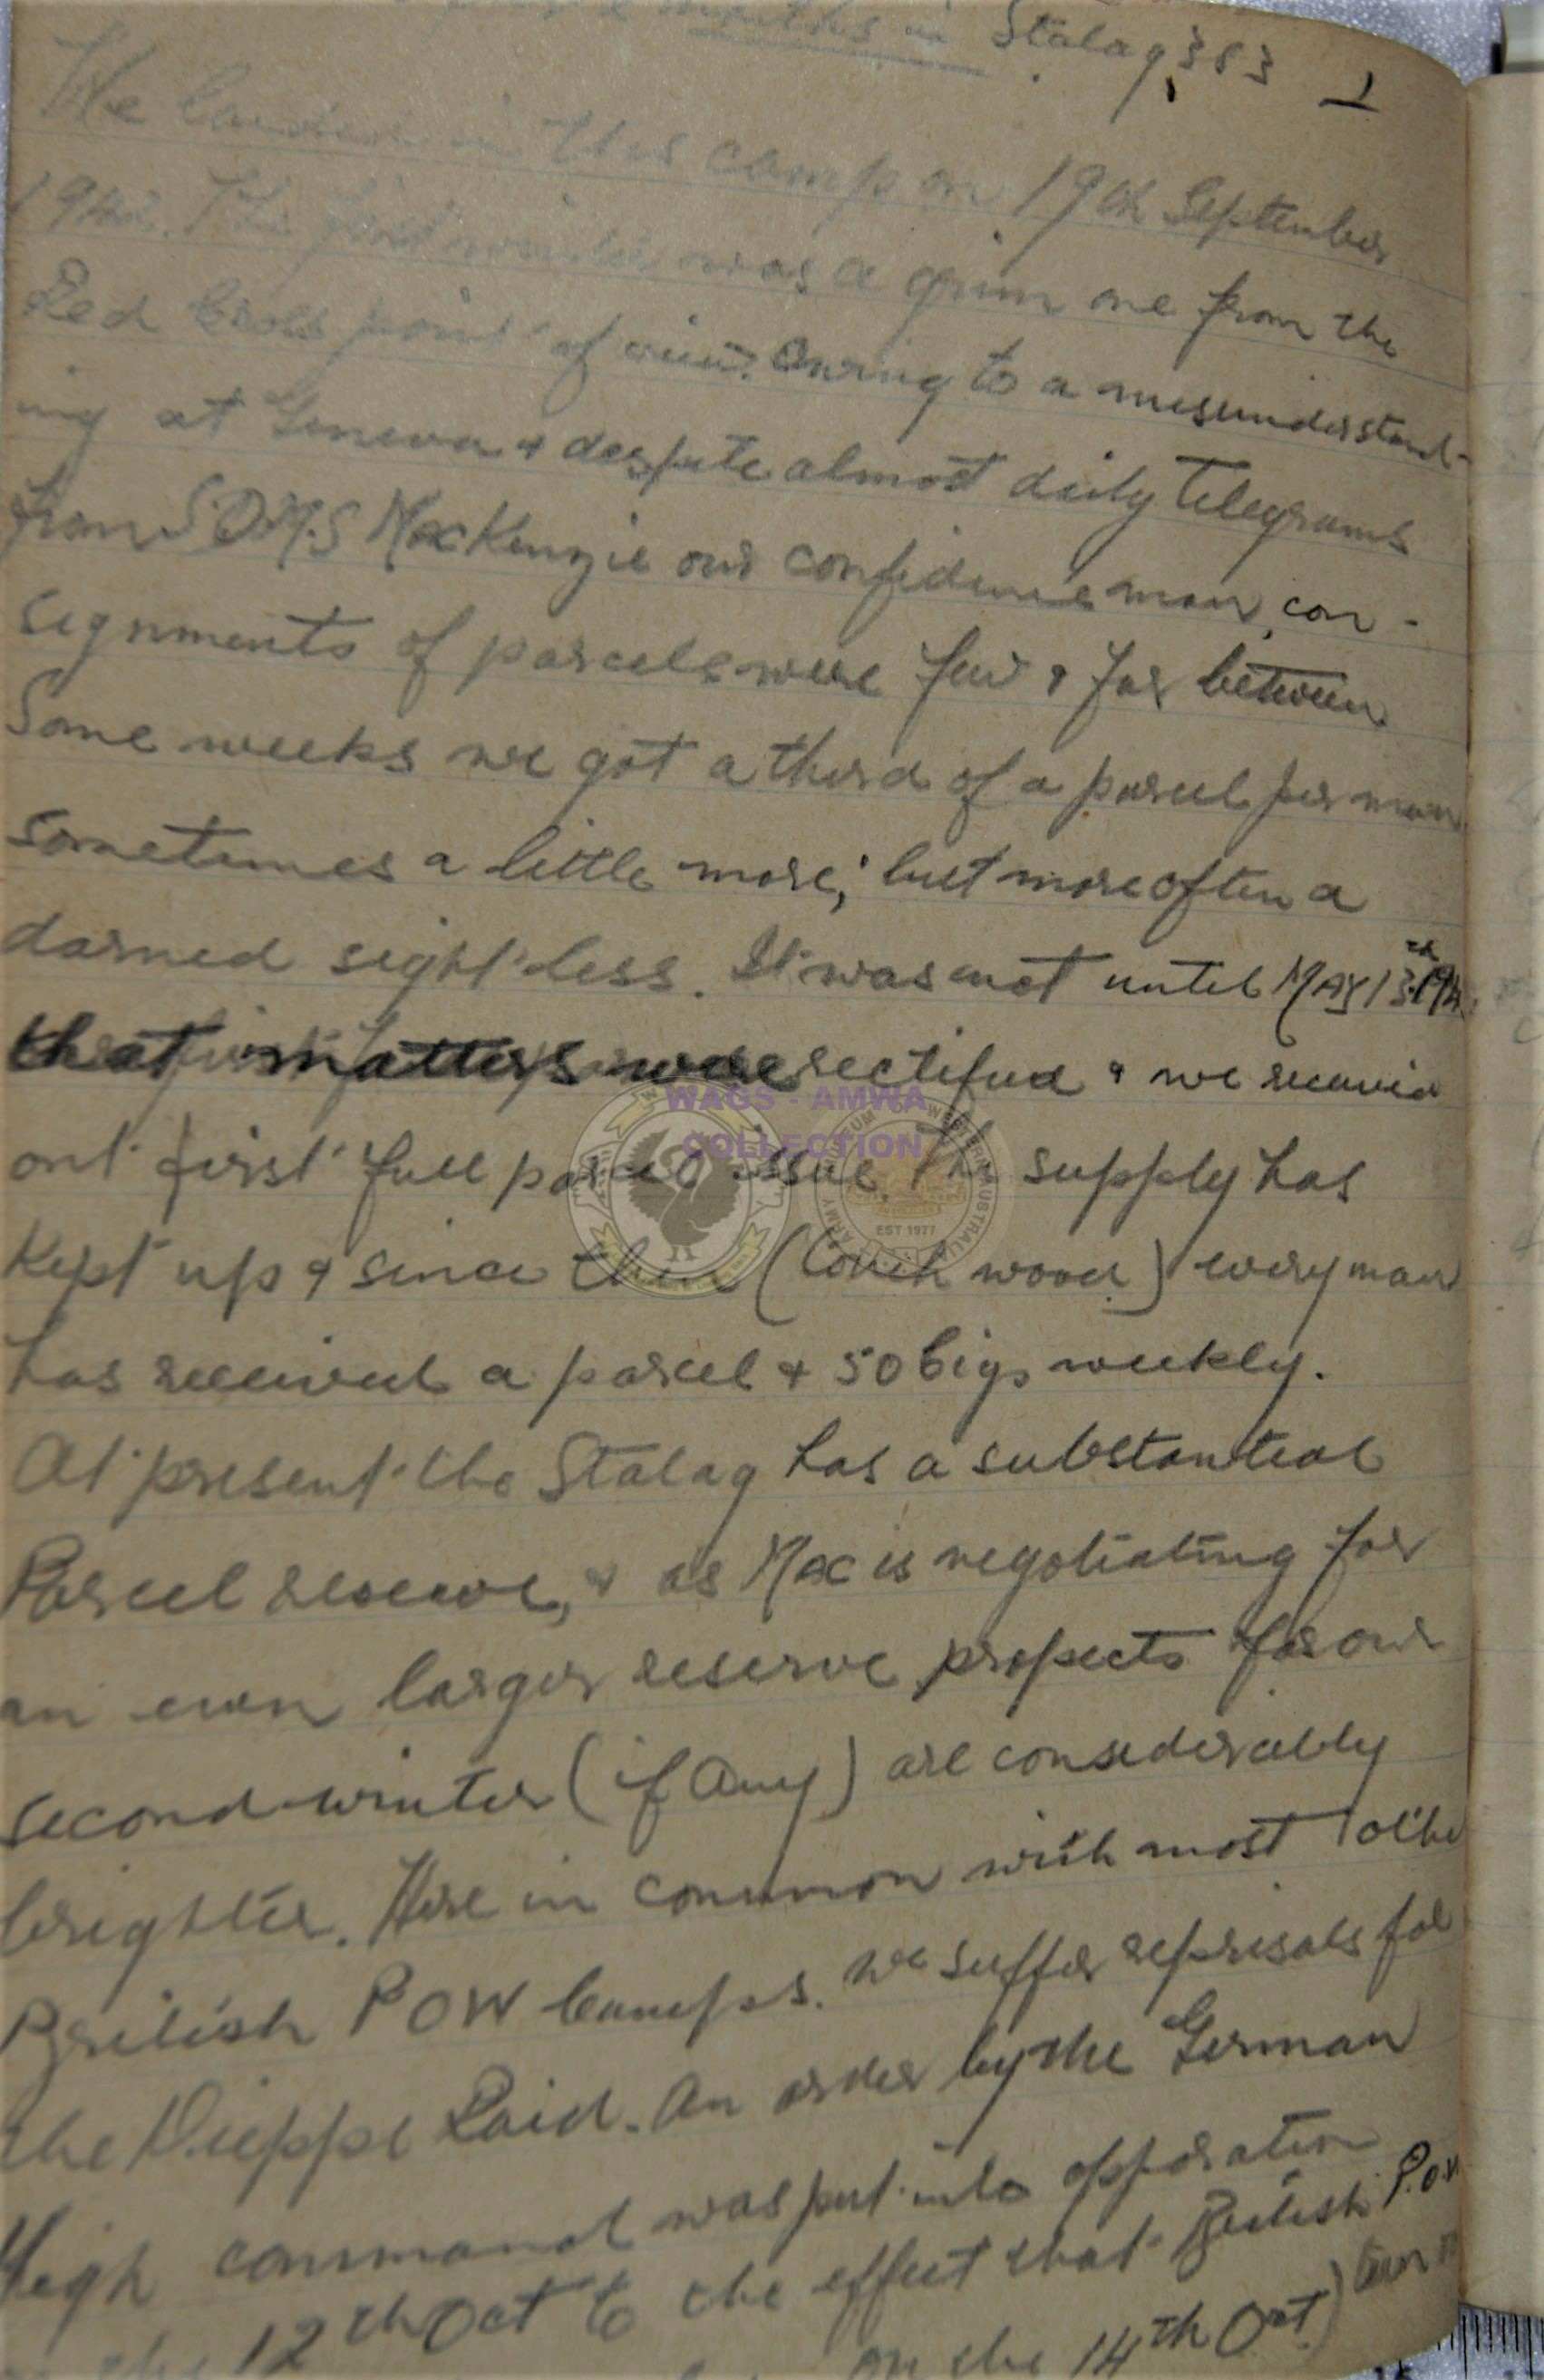 months in Stalag 383 1
We landed in this camp on 19th September
1942. The first winter was a grim one from the
Red Cross point of view. Owing to a misunderstand-
ing at Geneva & despite almost daily telegrams
from S.Q.M.S MacKenzie our confidence man, con-
signments of parcels were few & far between.
Some weeks we got a third of a parcel per man
sometimes a little more, but more often a
darned sight less. It was not until MAY 13th 194
that matters were rectified & we received
our first full parcel issue. The supply has
kept up & since then (touch wood) every man
has received a parcel & 50 Cigs weekly.
At present the Stalag has a substantial
Parcel reserve, & as Mac is negotiating for
an even larger reserve propects for our
second winter (if any) are considerably
brighter. Here in common with most other
British POW Camps. we suffer reprisals for
the Dieppe Raid. An order by the German
High command was put into opporation
the 12th Oct to the effect that British P.O.W
on the 14th Oct)
WAGS - AMWA
COLLECTION
MUSEUM OF WESTERN AUSTRALIA
ARMY
EST 1977